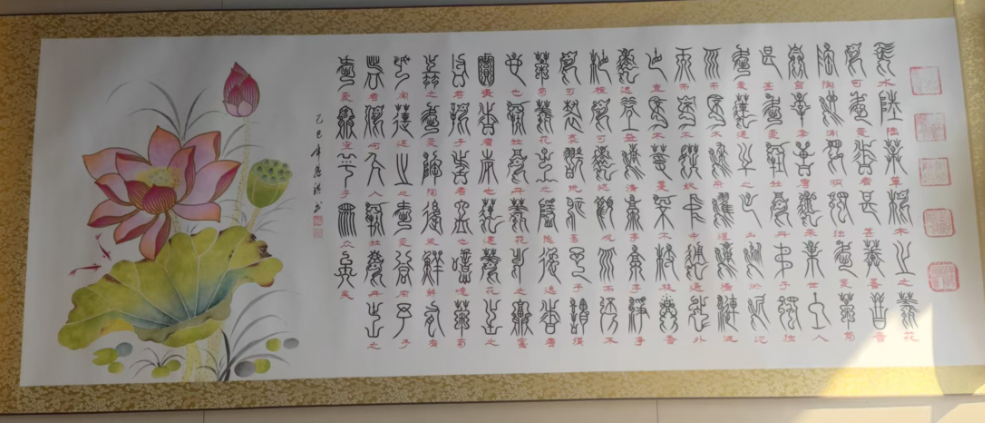 水陆草木之花
可爱者甚蕃晋
陶渊明独爱菊
自李唐来世人
甚爱牡丹予独
爱莲之出淤泥
而不染濯清涟
而不妖中通外
直不蔓不枝香
远益清亭亭净
植可远观而不
可亵玩焉予谓
菊花之隐逸者
也牡丹花之富
贵者也莲花之
君子者也噫菊
之爱陶后鲜有
闻莲之爱同予
者何人牡丹之
爱宜乎众矣
乙巳年书